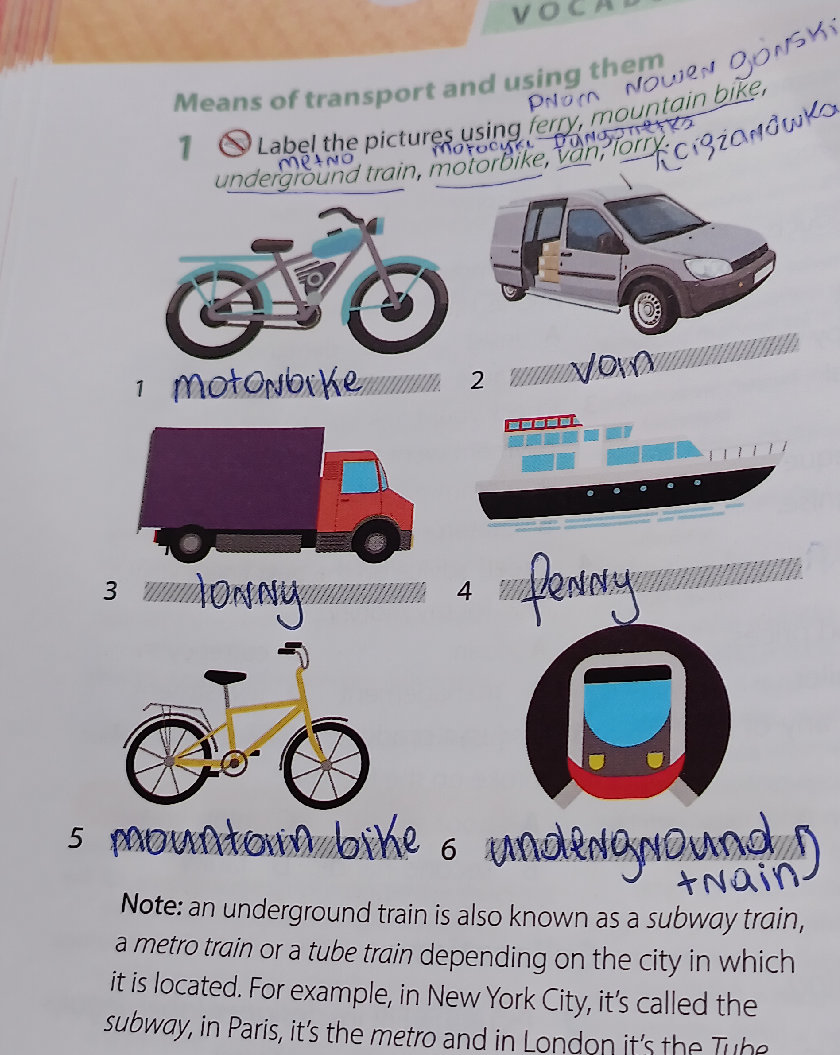 VOCAB
Means of transport and using them
prom rower górski
1 Label the pictures using ferry, mountain bike,
metro motocykl furgonetka ciężarówka
underground train, motorbike, van, lorry.
1 motorbike 2 van
3 lorry 4 ferry
5 mountain bike 6 underground
train
Note: an underground train is also known as a subway train,
a metro train or a tube train depending on the city in which
it is located. For example, in New York City, it's called the
subway, in Paris, it's the metro and in London it's the Tube.